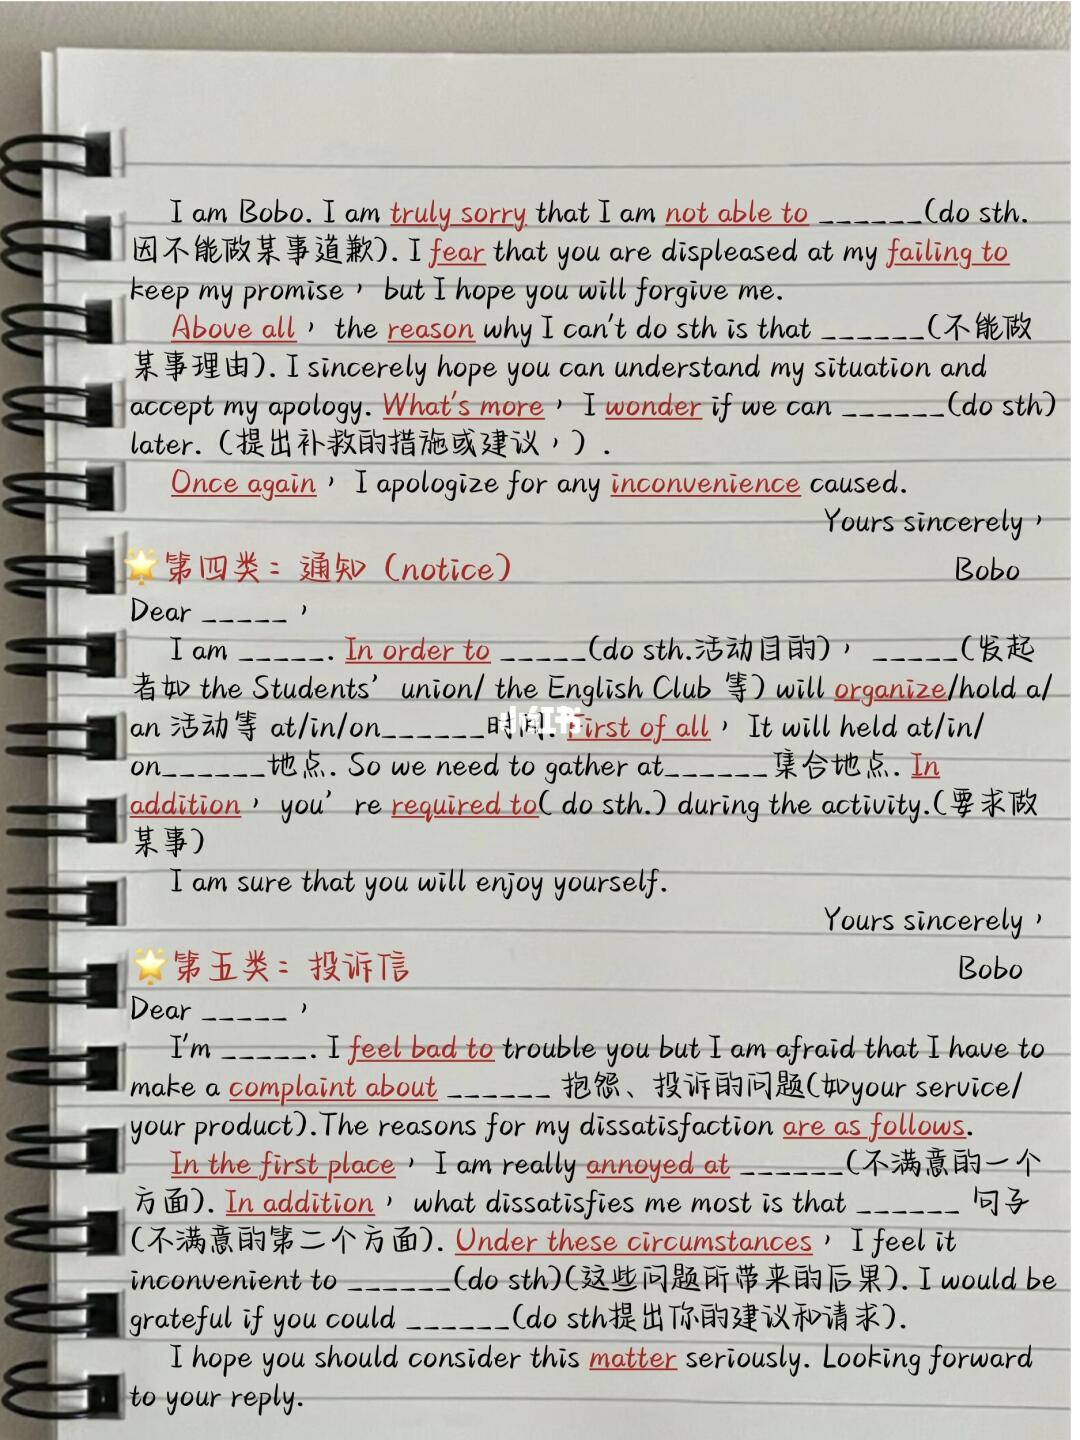 I am Bobo. I am truly sorry that I am not able to ______(do sth.
因不能做某事道歉). I fear that you are displeased at my failing to
keep my promise， but I hope you will forgive me.
Above all， the reason why I can't do sth is that ______(不能做
某事理由). I sincerely hope you can understand my situation and
accept my apology. What's more， I wonder if we can ______(do sth)
later.（提出补救的措施或建议，）.
Once again， I apologize for any inconvenience caused.
Yours sincerely，
🌟第四类：通知（notice） Bobo
Dear _____，
I am _____. In order to _____(do sth.活动目的)， _____(发起
者如 the Students’ union/ the English Club 等) will organize/hold a/
an 活动等 at/in/on______时间. First of all， It will held at/in/
on______地点. So we need to gather at______集合地点. In
addition， you’re required to( do sth.) during the activity.(要求做
某事)
I am sure that you will enjoy yourself.
Yours sincerely，
🌟第五类：投诉信 Bobo
Dear _____，
I'm _____. I feel bad to trouble you but I am afraid that I have to
make a complaint about ______ 抱怨、投诉的问题(如your service/
your product).The reasons for my dissatisfaction are as follows.
In the first place， I am really annoyed at ______(不满意的一个
方面). In addition， what dissatisfies me most is that ______ 句子
(不满意的第二个方面). Under these circumstances， I feel it
inconvenient to ______(do sth)(这些问题所带来的后果). I would be
grateful if you could ______(do sth提出你的建议和请求).
I hope you should consider this matter seriously. Looking forward
to your reply.
小红书